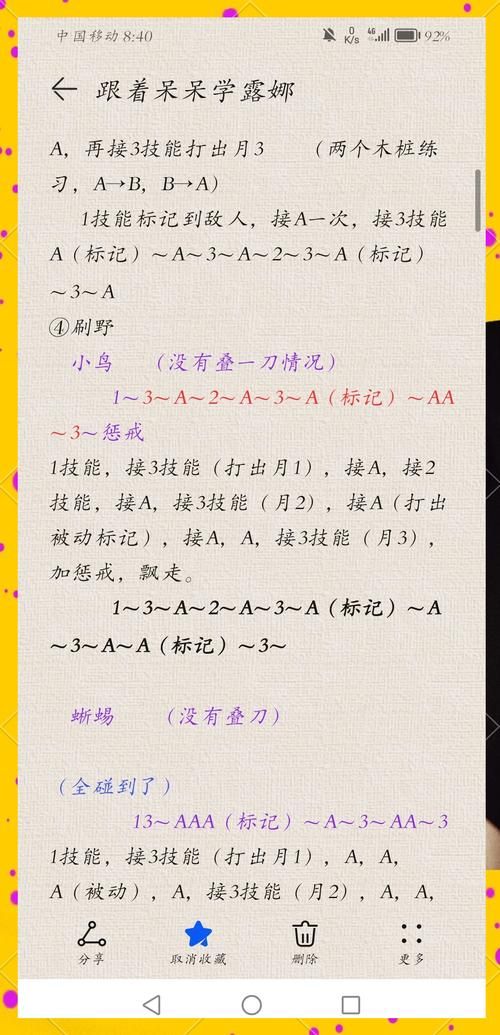 中国移动 8:40 0 K/s 4G 92%
跟着呆呆学露娜
A，再接3技能打出月3 （两个木桩练
习，A→B，B→A）
1技能标记到敌人，接A一次，接3技能
A（标记）~A~3~A~2~3~A（标记）
~3~A
④刷野
小鸟 （没有叠一刀情况）
1~3~A~2~A~3~A（标记）~AA
~3~惩戒
1技能，接3技能（打出月1），接A，接2
技能，接A，接3技能（月2），接A（打出
被动标记），接A，A，接3技能（月3），
加惩戒，飘走。
1~3~A~2~A~3~A（标记）~A
~3~A~A（标记）~3~
蜥蜴 （没有叠刀）
（全碰到了）
13~AAA（标记）~A~3~AA~3
1技能，接3技能（打出月1），A，A，
A（被动），A，接3技能（月2），A，A，
分享 取消收藏 删除 更多